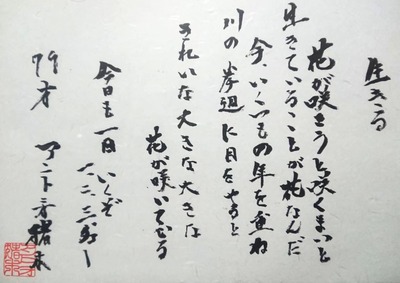 生きる
花が咲こうと咲くまいと
生きていることが花なんだ
今、いくつもの年を重ね
川の岸辺に目をやると
きれいな大きな大きな
花が咲いている
今日も一日 いくぞ
一、二、三ダー
79才 アントニオ猪木